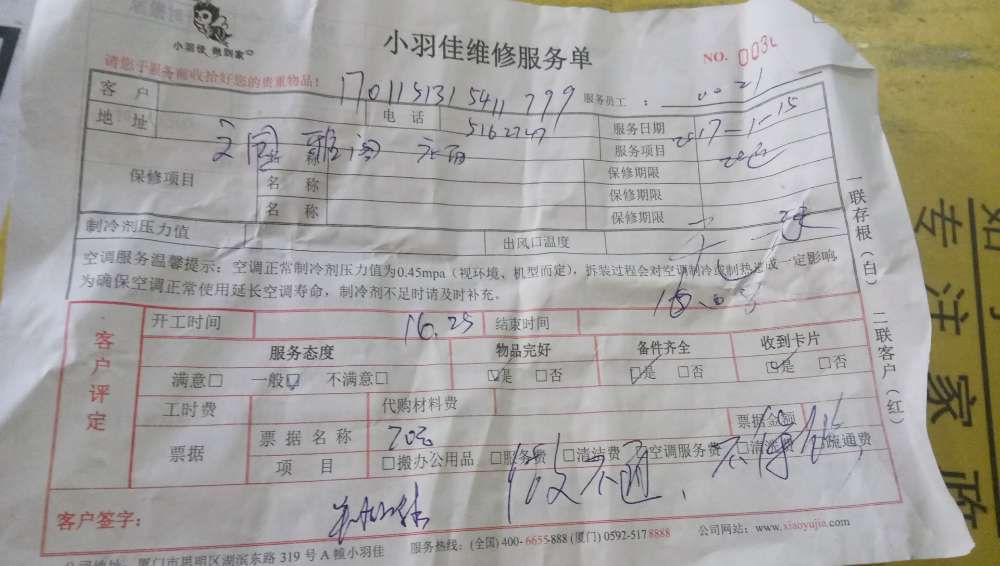 小羽佳 微到家
小羽佳维修服务单
NO. 003
请您于服务前收拾好您的贵重物品！
客户 1701151315411799 服务员工：
地址 电话 5162747 服务日期 2017-1-15
服务项目
保修项目 名称 保修期限
名称 保修期限
名称 保修期限
制冷剂压力值 出风口温度
空调服务温馨提示：空调正常制冷剂压力值为0.45mpa（视环境、机型而定），拆装过程会对空调制冷或制热造成一定影响
为确保空调正常使用延长空调寿命，制冷剂不足时请及时补充。
客户评定
开工时间 16.25 结束时间
服务态度 物品完好 备件齐全 收到卡片
满意□ 一般□ 不满意□ □是 □否 □是 □否 □是 □否
工时费 代购材料费
票据 票据名称 票据金额
项目 □搬办公用品 □服务费 □清洁费 □空调服务费 □清洗费 □疏通费
客户签字：
公司地址：厦门市思明区湖滨东路 319 号 A 幢小羽佳 服务热线：(全国) 400- 6655-888 (厦门) 0592-5178888 公司网站：www.xiaoyujia.com
一联存根（白） 二联客户（红）
专注家政